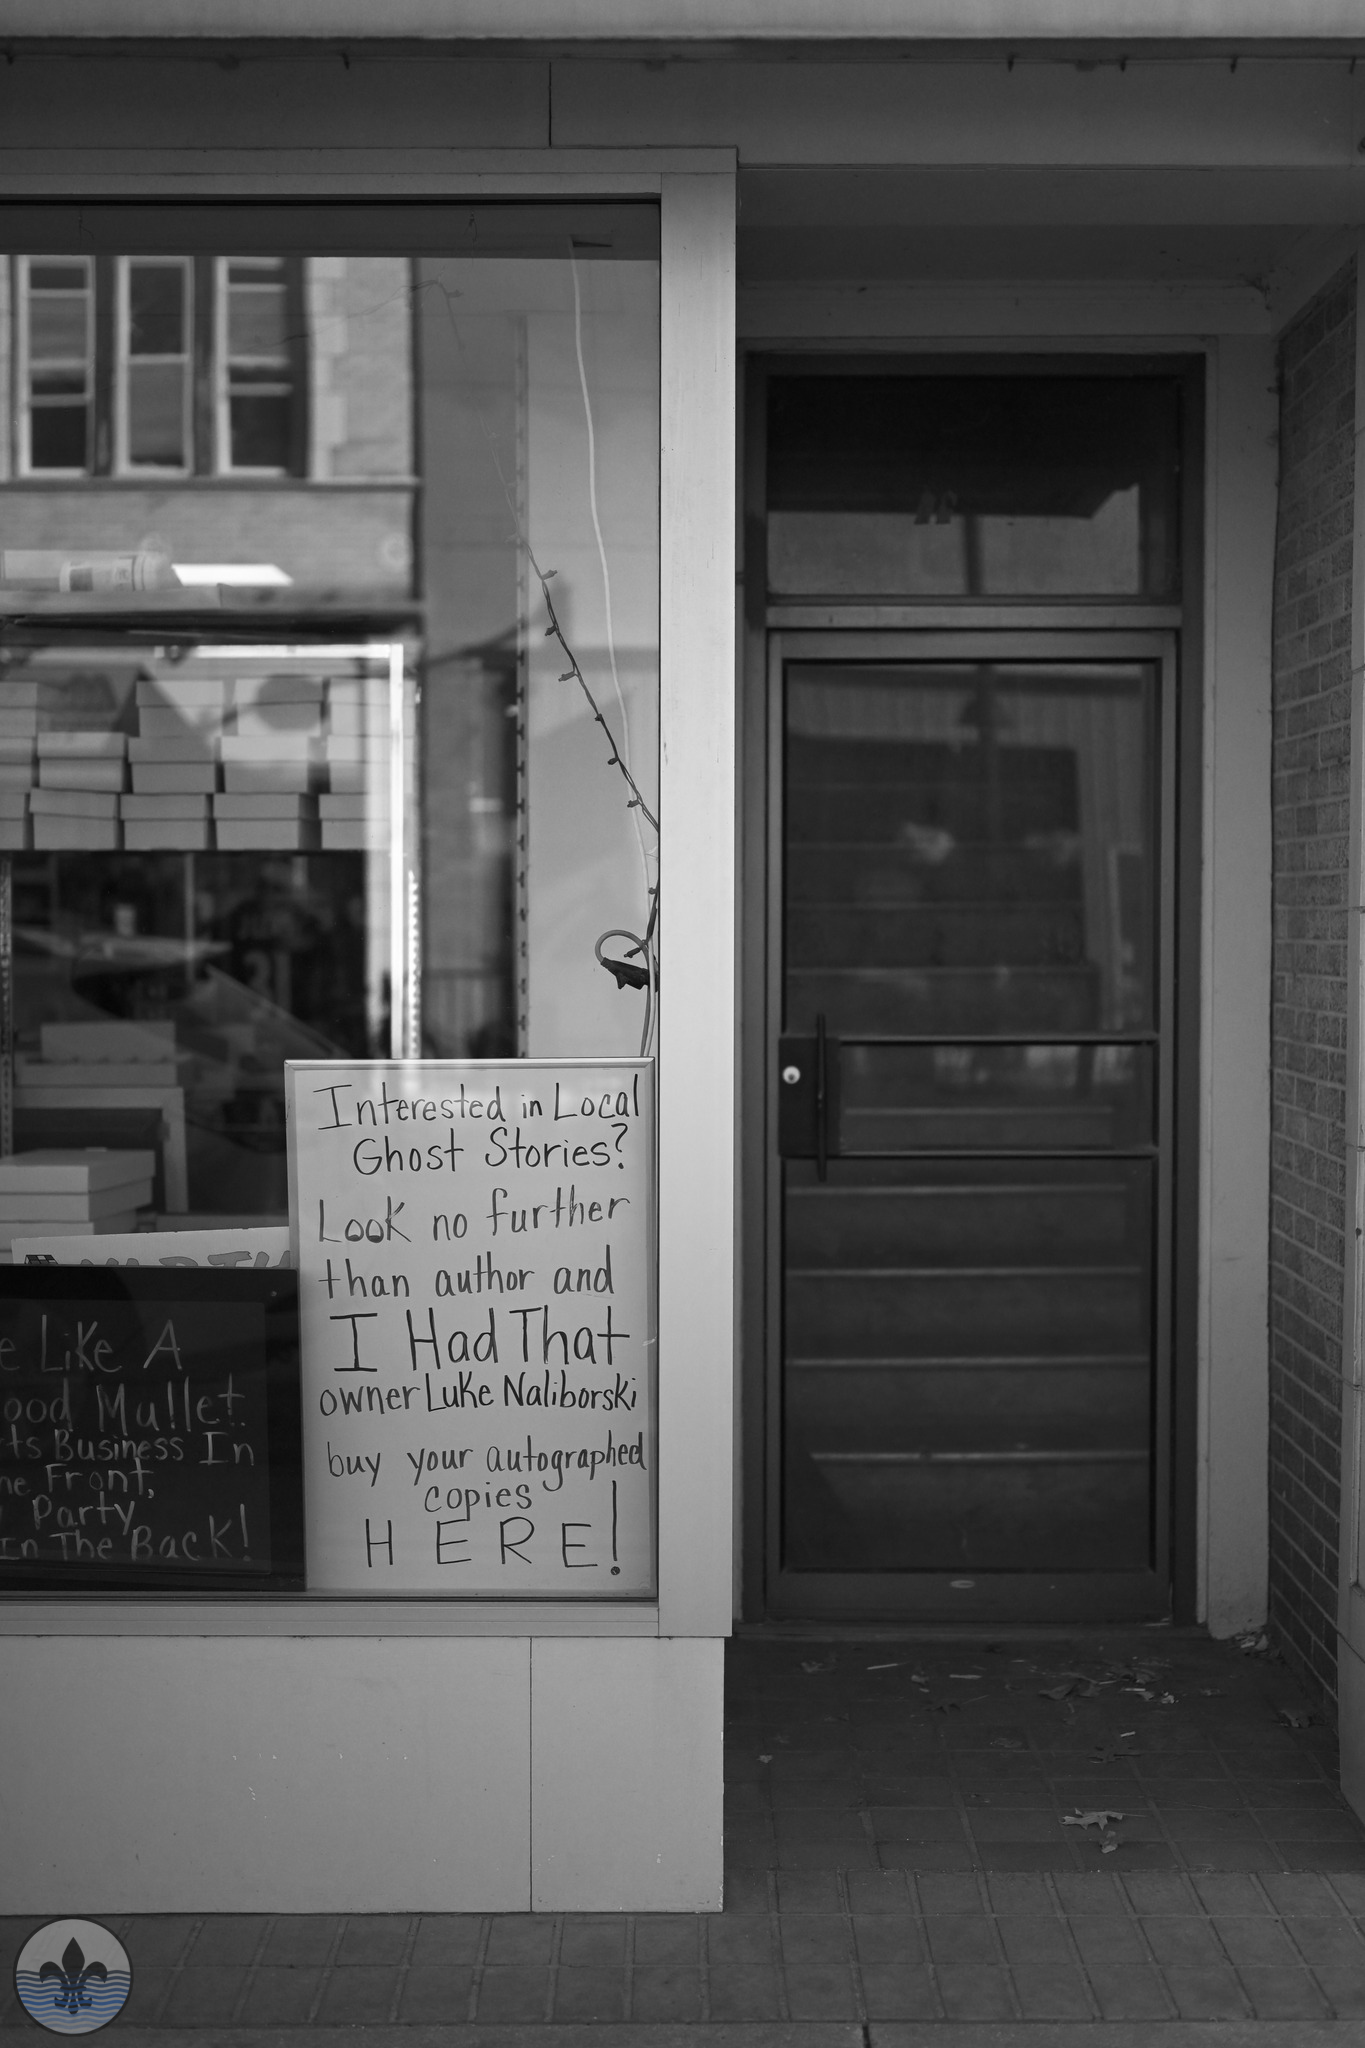 Interested in Local
Ghost Stories?
Look no further
than author and
I Had That
owner Luke Naliborski
buy your autographed
copies
HERE!
e Like A
ood Mullet.
ts Business In
he Front,
Party
In The Back!
31